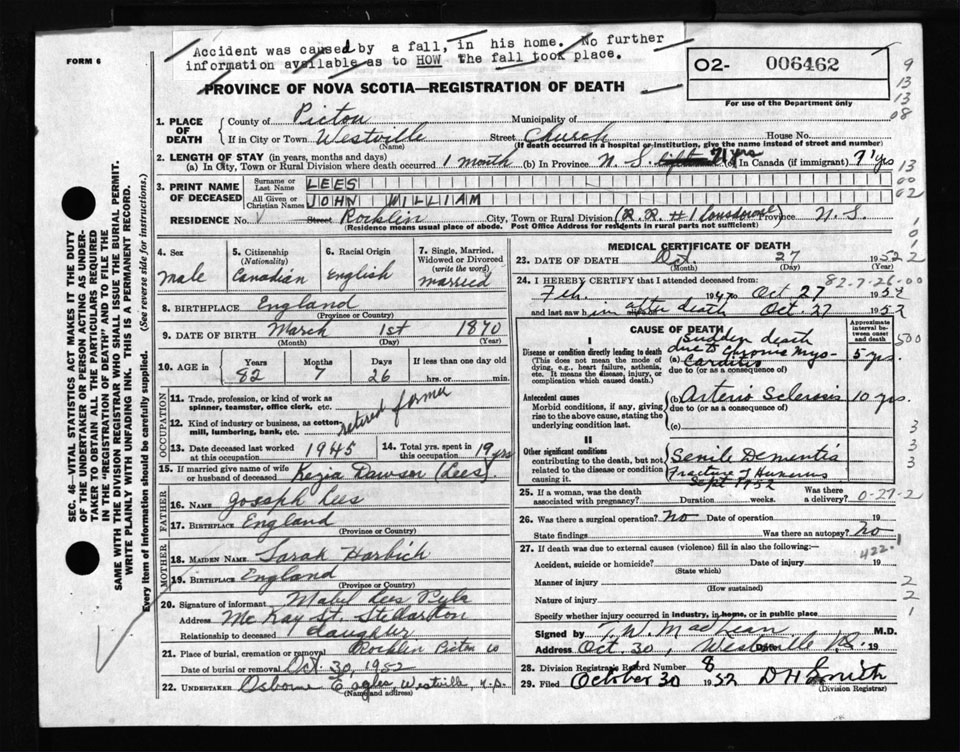 Accident was caused by a fall, in his home. No further
information available as to HOW the fall took place.
FORM 6
O2- 006462
For use of the Department only
PROVINCE OF NOVA SCOTIA—REGISTRATION OF DEATH
1. PLACE OF DEATH
County of Pictou Municipality of
If in City or Town Westville Street Church House No.
(Name) (If death occurred in a hospital or institution, give the name instead of street and number)
2. LENGTH OF STAY (in years, months and days)
(a) In City, Town or Rural Division where death occurred 1 month (b) In Province N. S. 71 yrs (c) In Canada (if immigrant) 71 yrs
3. PRINT NAME OF DECEASED
Surname or Last Name LEES
All Given or Christian Names JOHN WILLIAM
RESIDENCE No. Street Rocklin City, Town or Rural Division (R. R. #1 Province N. S.
(Residence means usual place of abode. Post Office Address for residents in rural parts not sufficient)
4. Sex
Male
5. Citizenship (Nationality)
Canadian
6. Racial Origin
English
7. Single, Married, Widowed or Divorced (write the word)
married
8. BIRTHPLACE England
(Province or Country)
9. DATE OF BIRTH March 1st 1870
(Month) (Day) (Year)
10. AGE in Years 82 Months 7 Days 26 If less than one day old
hrs. or min.
OCCUPATION
11. Trade, profession, or kind of work as spinner, teamster, office clerk, etc.
12. Kind of industry or business, as cotton mill, lumbering, bank, etc.
retired farmer
13. Date deceased last worked at this occupation 1945
14. Total yrs. spent in this occupation 19 yrs
15. If married give name of wife or husband of deceased Kezia Dawson (Lees).
FATHER
16. NAME Joseph Lees
17. BIRTHPLACE England
(Province or Country)
MOTHER
18. MAIDEN NAME Sarah
19. BIRTHPLACE England
(Province or Country)
20. Signature of informant Mabel Lees
Address McKay St. Stellarton
Relationship to deceased daughter
21. Place of burial, cremation or removal Rocklin Pictou Co
Date of burial or removal Oct 30, 1952
22. UNDERTAKER Osborne Eagles Westville, N.S.
(Name and address)
MEDICAL CERTIFICATE OF DEATH
23. DATE OF DEATH Oct. 27 1952
(Month) (Day) (Year)
24. I HEREBY CERTIFY that I attended deceased from: 82-7-26-00
Feb. 1947 to Oct 27 1952
and last saw him after death Oct. 27 1952
CAUSE OF DEATH
Approximate interval between onset and death
I
Disease or condition directly leading to death
(This does not mean the mode of dying, e.g., heart failure, asthenia, etc. It means the disease, injury, or complication which caused death.
Sudden death
due to
(a) Chronic Myocarditis 5 yrs.
due to (or as a consequence of)
Antecedent causes
Morbid conditions, if any, giving rise to the above cause, stating the underlying condition last.
(b) Arterio Sclerosis 10 yrs.
due to (or as a consequence of)
(c)
II
Other significant conditions
contributing to the death, but not related to the disease or condition causing it.
Senile Dementia
Fracture of Humerus
Sept 1952
25. If a woman, was the death associated with pregnancy? Duration weeks. Was there a delivery? 0-27-2
26. Was there a surgical operation? No Date of operation 19
State findings Was there an autopsy? No
27. If death was due to external causes (violence) fill in also the following:—
422.1
Accident, suicide or homicide? Date of injury 19
(State which)
Manner of injury
(How sustained)
Nature of injury
Specify whether injury occurred in industry, in home, or in public place
Signed by M.D.
Address Oct. 30, Westville N.S. Date 19
28. Division Registrar's Record Number 8
29. Filed October 30 1952 D H Smith
(Division Registrar)
SEC. 46—VITAL STATISTICS ACT MAKES IT THE DUTY
OF THE UNDERTAKER OR PERSON ACTING AS UNDER-
TAKER TO OBTAIN ALL THE PARTICULARS REQUIRED
IN THE "REGISTRATION OF DEATH" AND TO FILE THE
SAME WITH THE DIVISION REGISTRAR WHO SHALL ISSUE THE BURIAL PERMIT.
WRITE PLAINLY WITH UNFADING INK. THIS IS A PERMANENT RECORD.
Every item of Information should be carefully supplied. (See reverse side for instructions.)
9
13
13
08
13
00
02
1
0
1
2
500
3
3
3
2
2
1